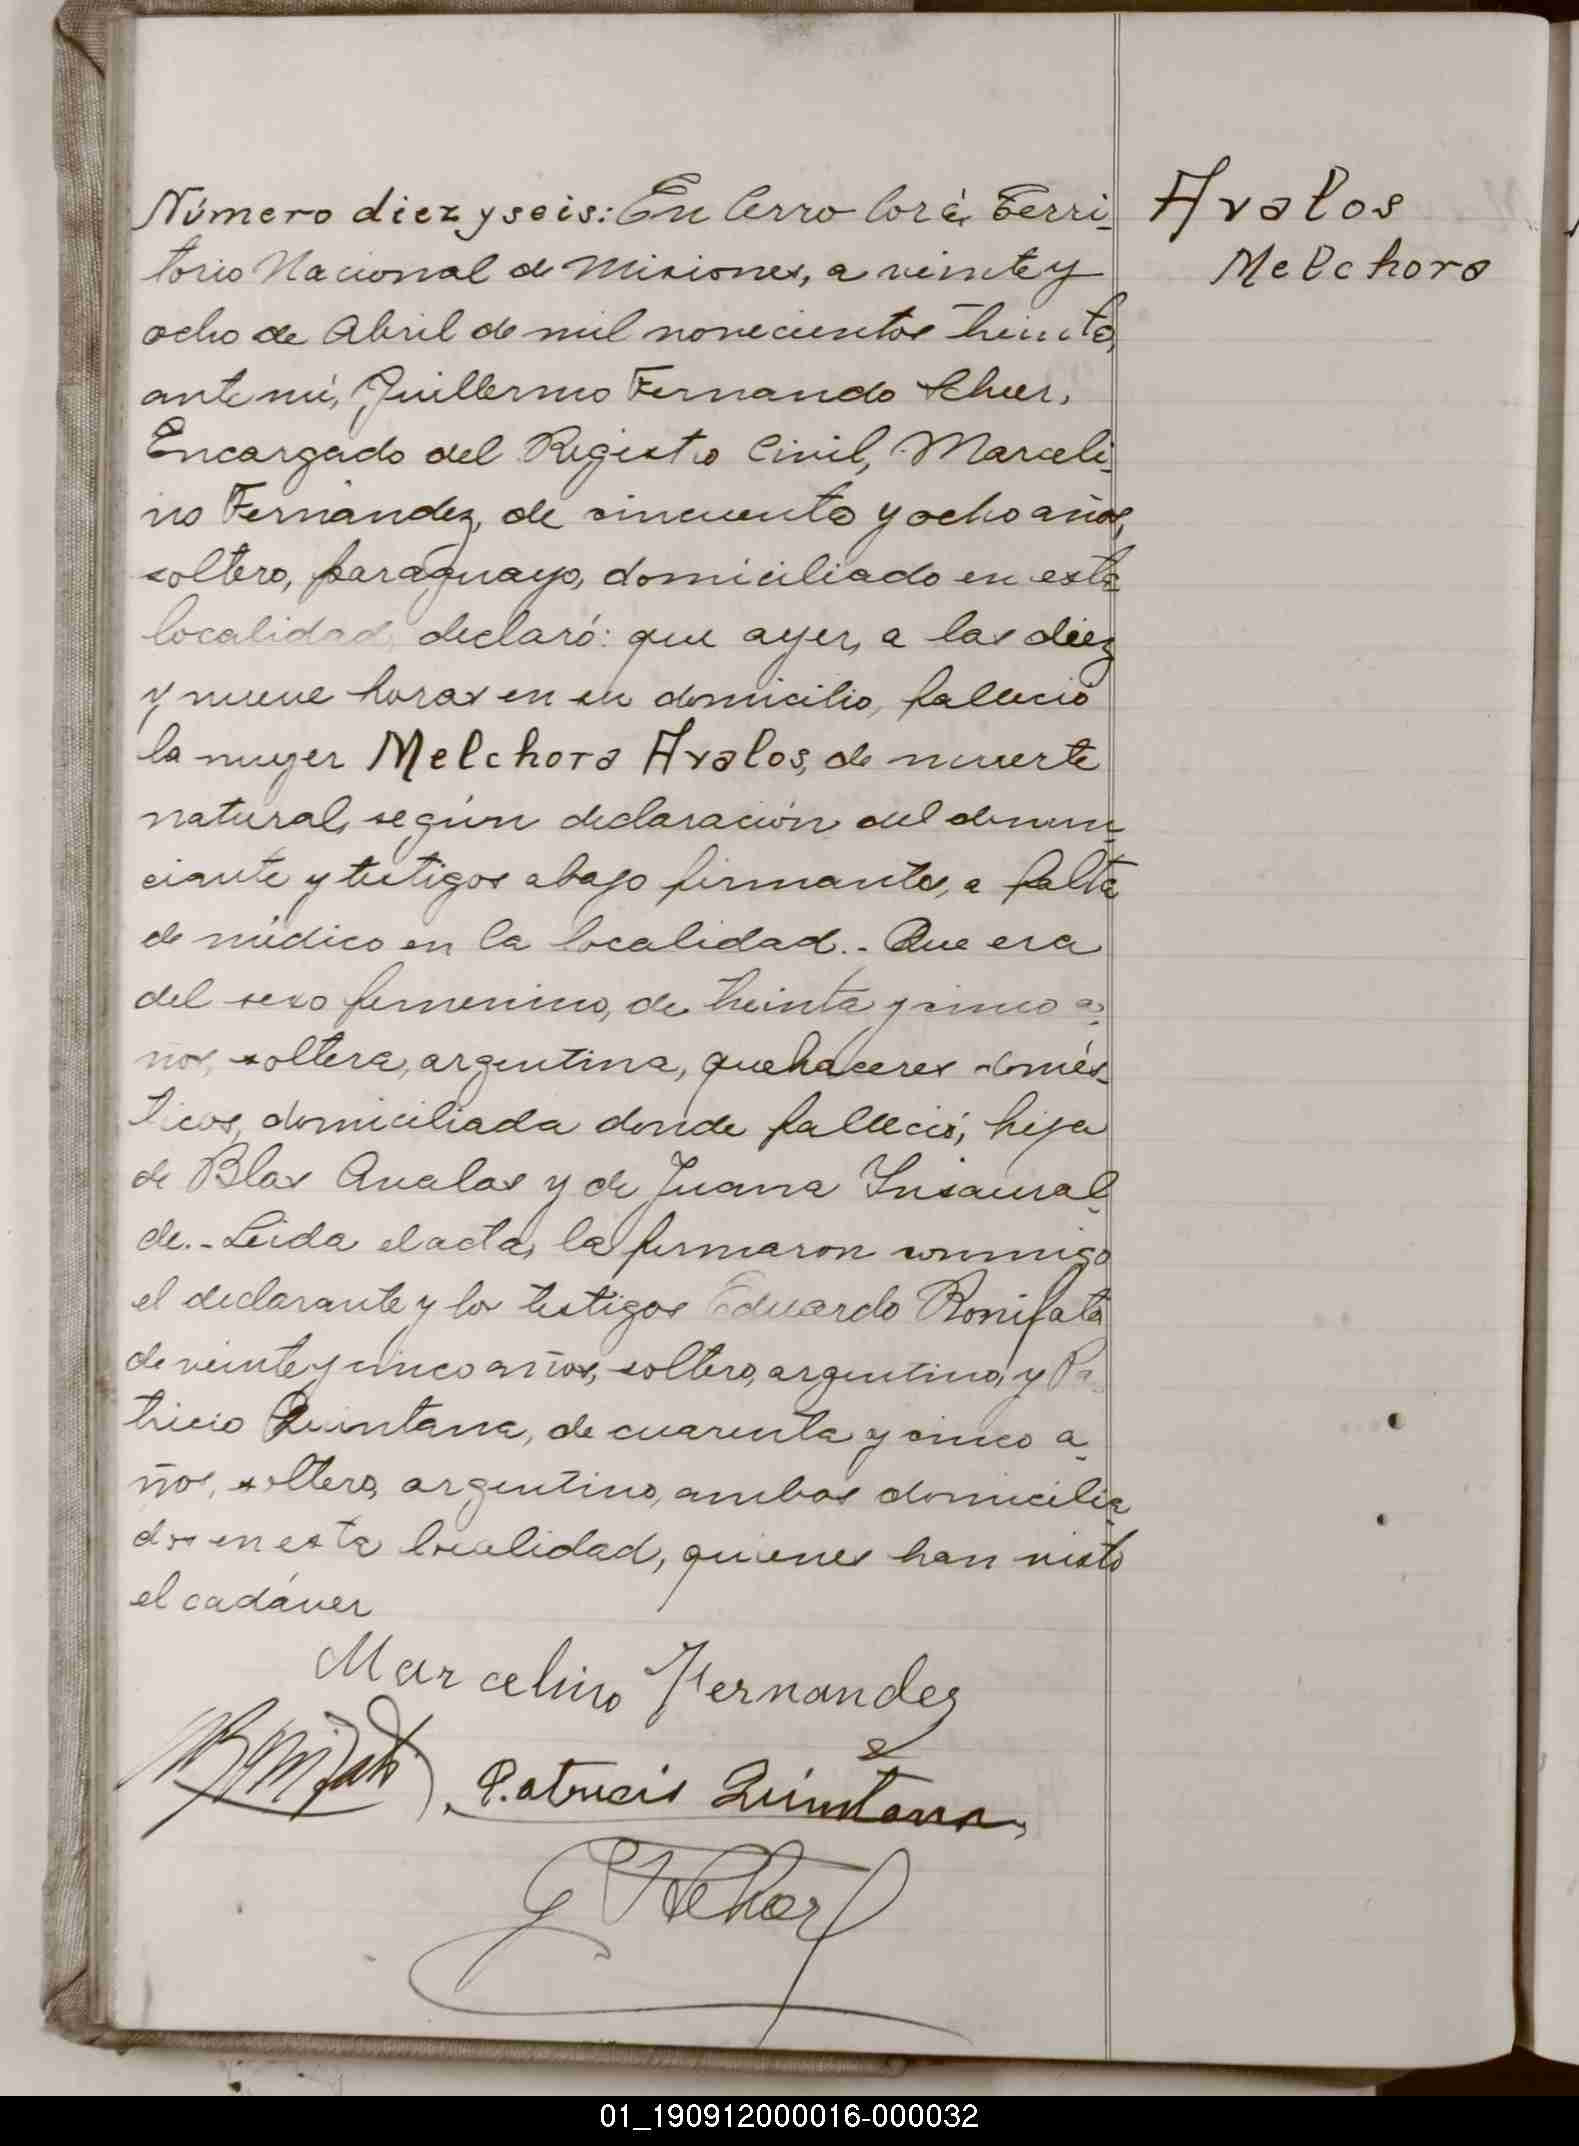 Número diez y seis: En Cerro Corá, Terri-
torio Nacional de Misiones, a veinte y
ocho de Abril de mil novecientos treinta,
ante mí, Guillermo Fernando Scheer,
Encargado del Registro Civil, Marceli-
no Fernández, de cincuenta y ocho años,
soltero, paraguayo, domiciliado en esta
localidad, declaró: que ayer, a las diez
y nueve horas en su domicilio, falleció
la mujer Melchora Avalos, de muerte
natural, según declaración del denun-
ciante y testigos abajo firmantes, a falta
de médico en la localidad.- Que era
del sexo femenino, de treinta y cinco a-
ños, soltera, argentina, quehaceres domés-
ticos, domiciliada donde falleció, hija
de Blas Avalos y de Juana Insaural-
de.- Leida el acta, la firmaron conmigo
el declarante y los testigos Eduardo Bonifato
de veinte y cinco años, soltero, argentino, y Pa-
tricio Quintana, de cuarenta y cinco a-
ños, soltero, argentino, ambos domicilia-
dos en esta localidad, quienes han visto
el cadáver
Marcelino Fernandez
Patricio Quintana
Avalos
Melchora
01_190912000016-000032